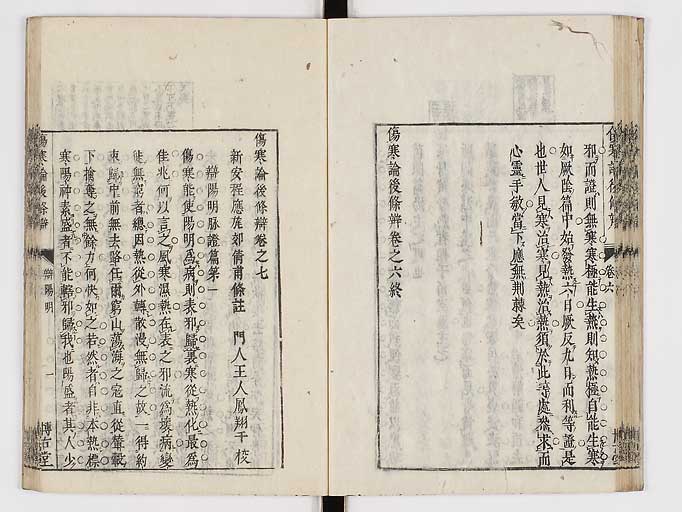 傷寒論後條辨
卷六
邪而證則無寒寒極能生熱則知熱極自能生寒
如厥陰篇中始發熱六日厥反九日而利等證是
也世人見寒治寒見熱治熱須於此等處叅求而
心靈手敏當下應無荆棘矣
傷寒論後條辨卷之六終
傷寒論後條辨卷之七
新安程應旄郊倩甫條註 門人王人鳳翔千校
辨陽明脉證篇第一
傷寒能使陽明爲病則表邪歸裏寒從熱化最爲
佳兆何以言之風寒濕熱在表之邪流爲壞病變
徒無窮者總因熱從外轉散漫無歸之故一得約
束歸中前無去路任爾窮山蕩海之寇直從輦轂
下擒毒之無餘力何快如之若然者自非本熱標
寒陽神素盛者不能轄邪歸我也陽盛者其人少
傷寒論後條辨
辨陽明
一
博古堂